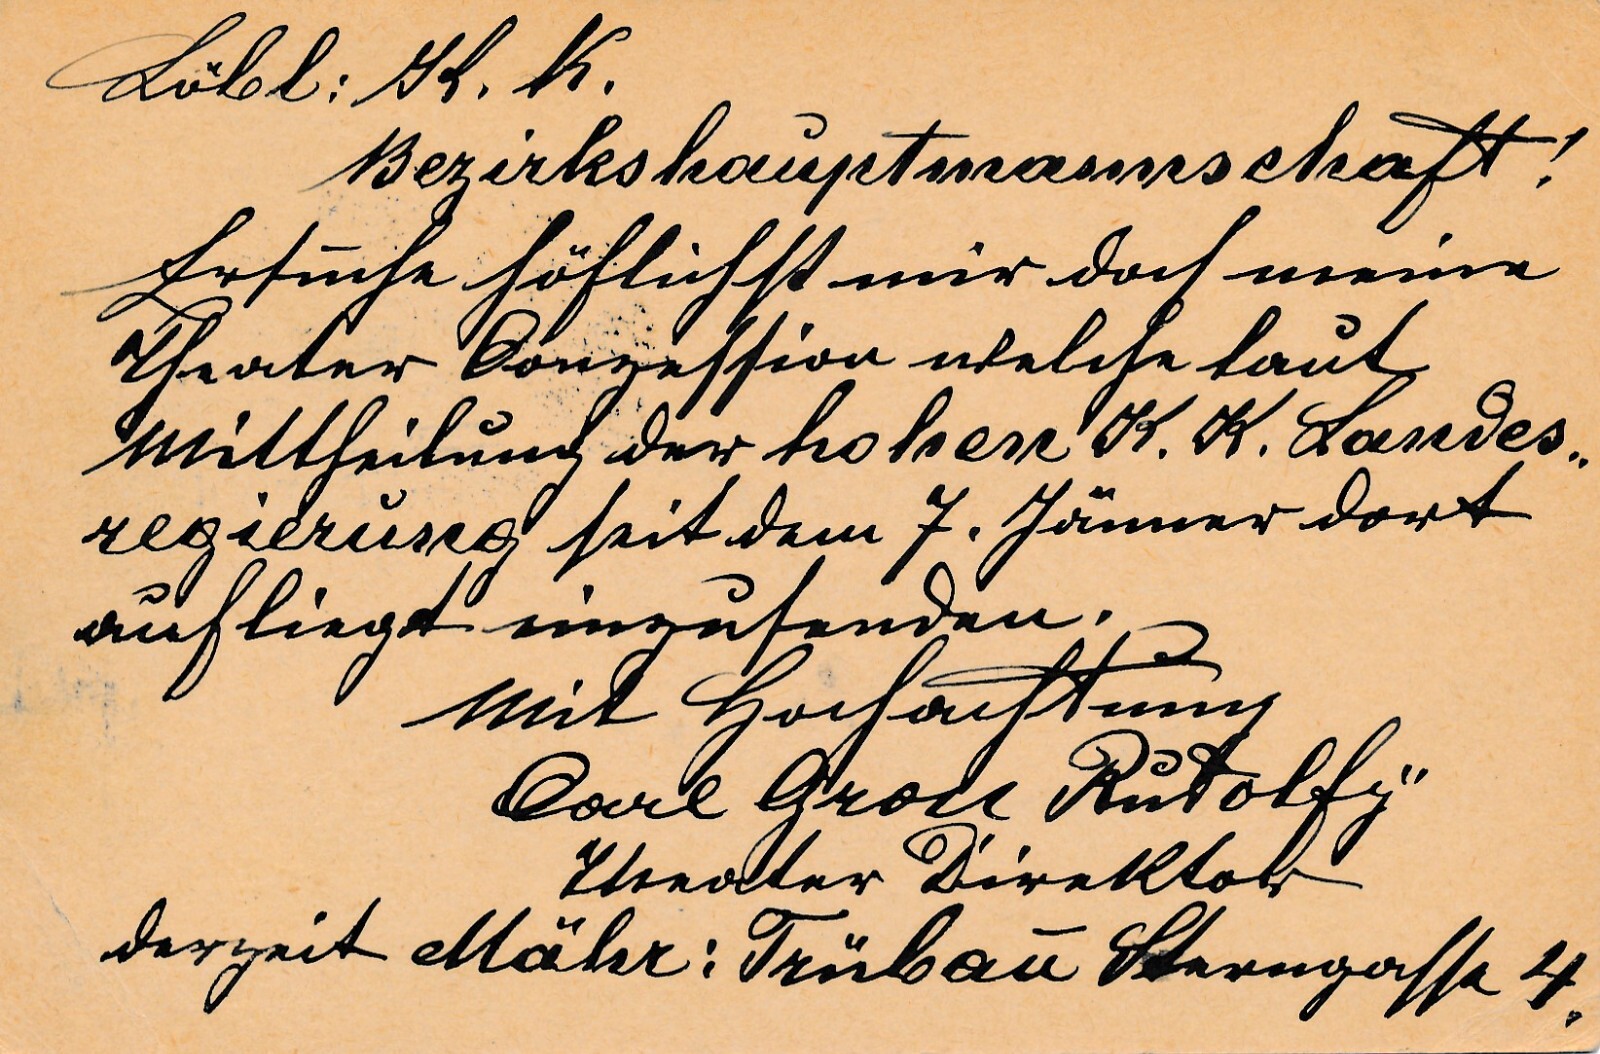 Löbl: K. K.
Bezirkshauptmannschaft!
Ersuche höflichst mir doch meine
Theater Conzession welche laut
Mittheilung der hohen K. K. Landes„
regierung seit dem 7. Jänner dort
aufliegt einzusenden.
Mit Hochachtung
Carl Rudolfy
Theater Direktor
derzeit Mähr: Trübau Sterngasse 4.